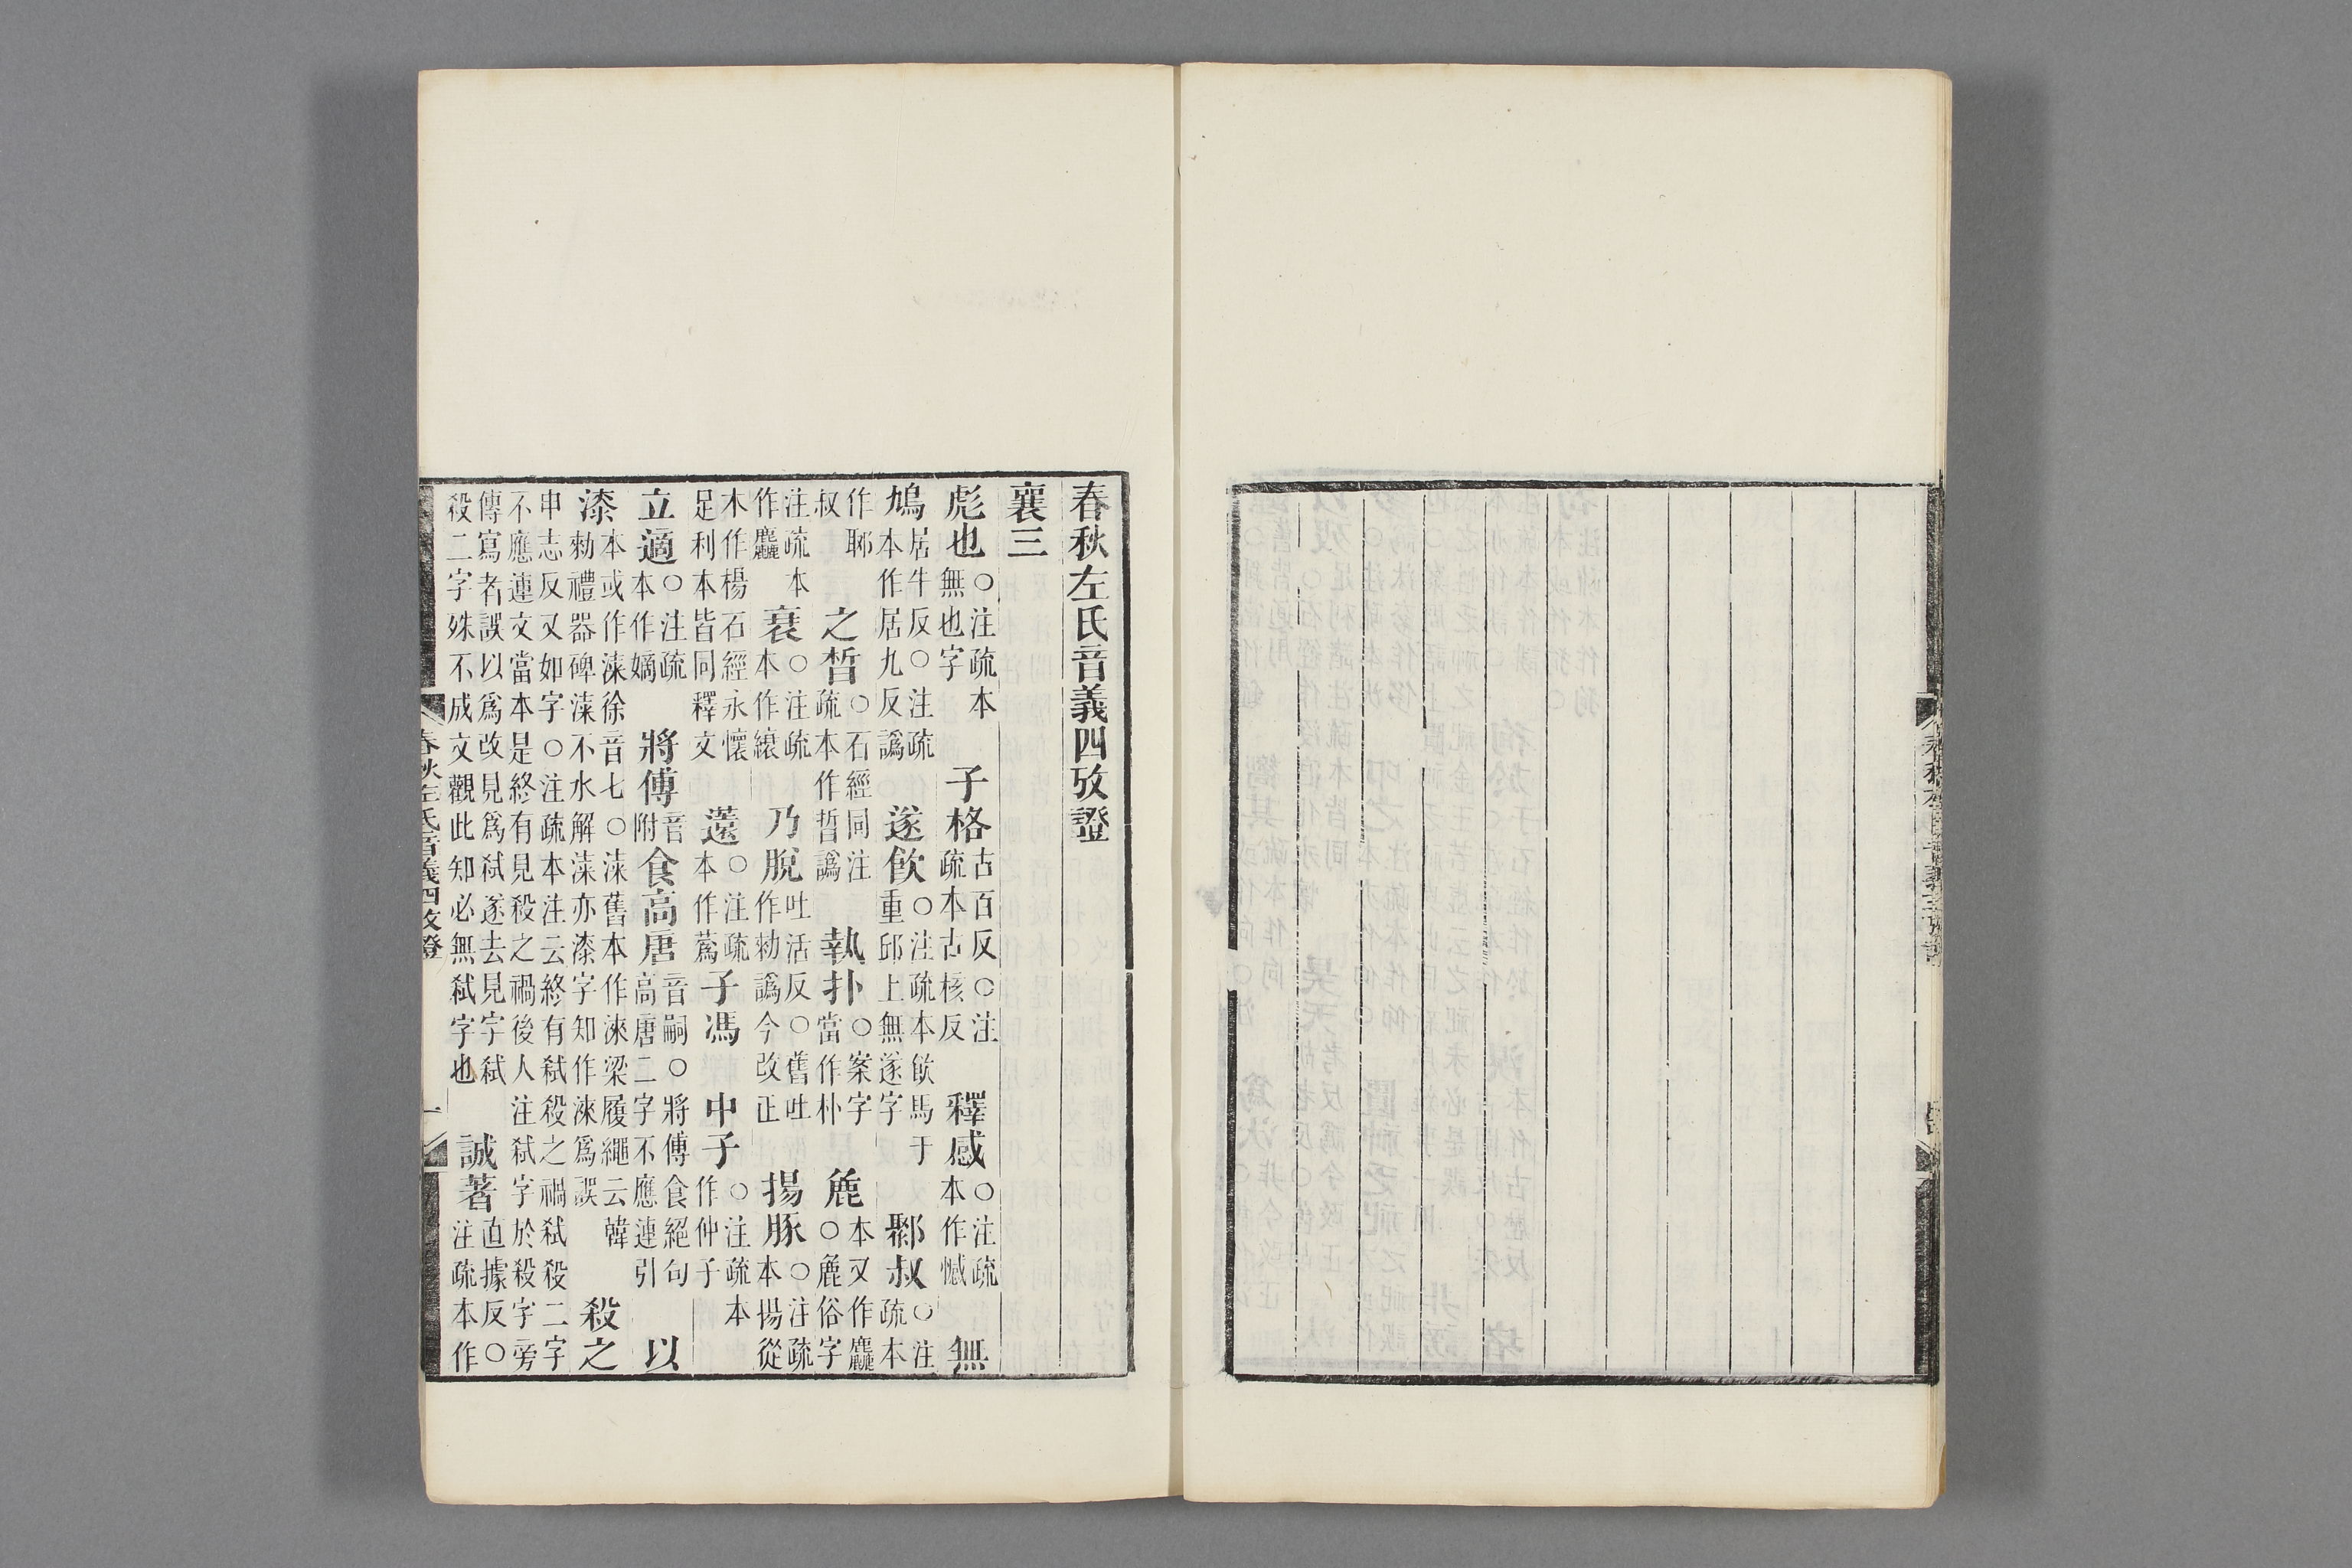 春秋左氏音義三攷證
春秋左氏音義四攷證
襄三
彪也○注疏本無也字 子格古百反○注疏本古核反 釋感○注疏本作憾 無
鳩居牛反○注疏本作居九反譌 遂飲○注疏本飲馬于重邱上無遂字 鄹叔○注疏本
作郰叔 之晳○石經同注疏本作晢譌 執扑○案字當作朴 麁本又作麤○麁俗字
注疏本作麤 衰○注疏本作縗 乃脫吐活反○舊吐作勑譌今改正 揚豚○注疏本揚從
木作楊石經永懷足利本皆同釋文 薳○注疏本作蒍 子馮 中子○注疏本作仲子
立適○注疏本作嫡 將傅音附 食高唐音嗣○將傅食絕句高唐二字不應連引 以
漆本或作㴃徐音七○㴃舊本作淶梁履繩云韓勑禮器碑㴃不水解㴃亦漆字知作淶爲誤 殺之
申志反又如字○注疏本注云終有弑殺之禍弑殺二字不應連文當本是終有見殺之禍後人注弑字於殺字旁
傳寫者誤以爲改見爲弑遂去見字弑殺二字殊不成文觀此知必無弑字也 誠著直據反○注疏本作
春秋左氏音義四攷證 一